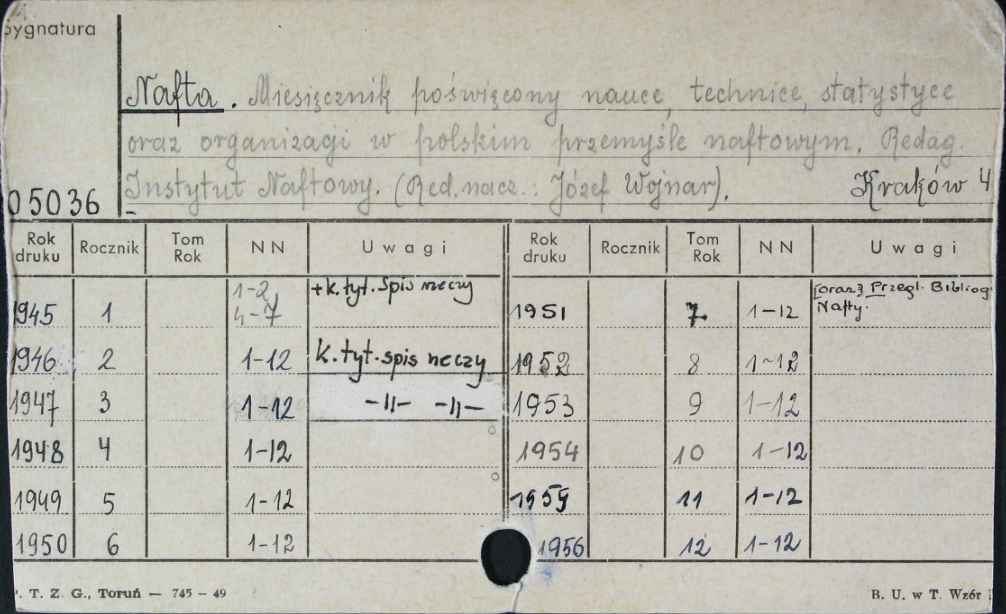 Sygnatura
Nafta. Miesięcznik poświęcony nauce, technice, statystyce
oraz organizacji w polskim przemyśle naftowym. Redag.
Instytut Naftowy. (Red. nacz.: Józef Wojnar). Kraków 4
05036
Rok druku Rocznik Tom Rok NN Uwagi Rok druku Rocznik Tom Rok NN Uwagi
1945 1 1-2, 4-7 +k.tyt. Spis rzeczy 1951 7 1-12 [oraz] Przegl. Bibliog. Nafty.
1946 2 1-12 k.tyt. spis rzeczy 1952 8 1-12
1947 3 1-12 -11- -11- 1953 9 1-12
1948 4 1-12 1954 10 1-12
1949 5 1-12 1955 11 1-12
1950 6 1-12 1956 12 1-12
P. T. Z. G., Toruń — 745 - 49 B. U. w T. Wzór